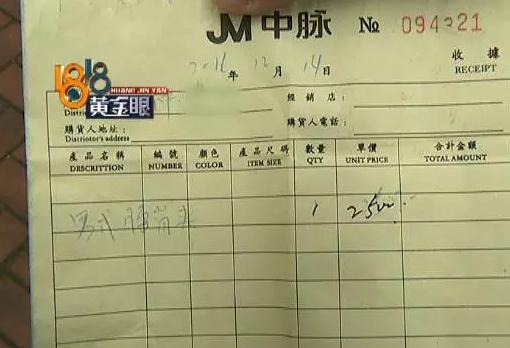 JM 中脉 No 094321
收 據
RECEIPT
2016 年 12 月 14 日
1818
HUANG JIN YAN
黃金眼
經 銷 店 :
購貨人地址: 購貨人電話:
Distriotor's address
產 品 名 稱 編 號 顏色 產 品 尺 碼 數量 單價 合計金額
DESCRITTION NUMBER COLOR ITEM SIZE QTY UNIT PRICE TOTAL AMOUNT
男式 1 2500